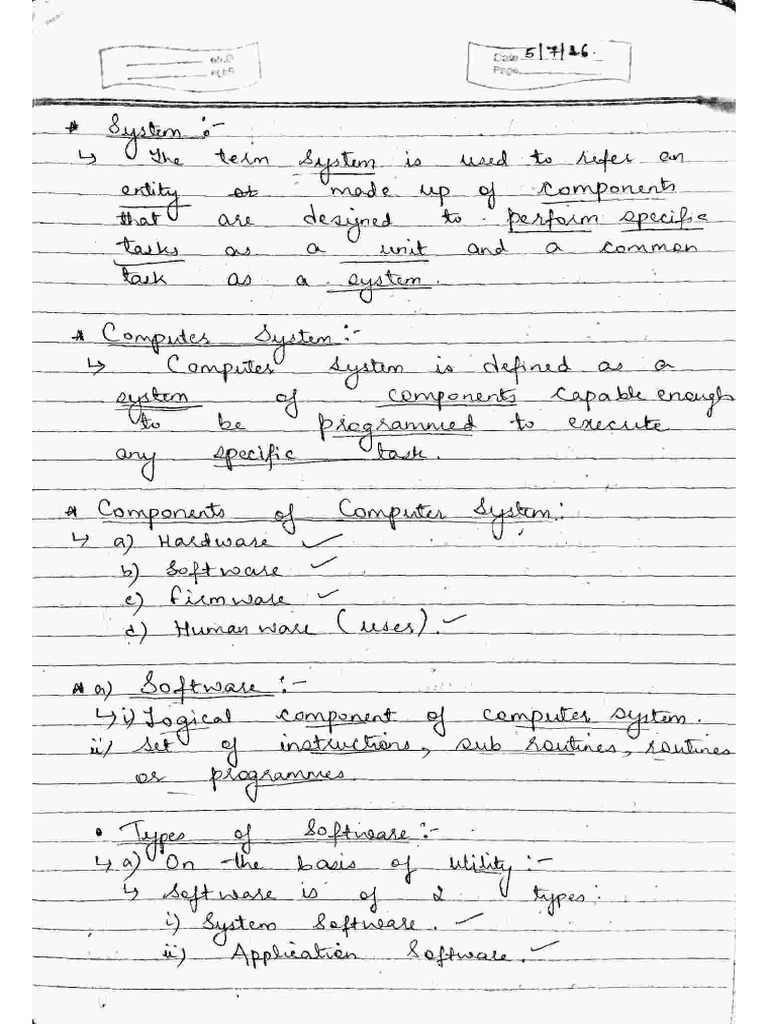 Date 5/7/26.
Page
* System :-
↳ The term system is used to refer an
entity made up of components
that are designed to perform specific
tasks as a unit and a common
task as a system.
* Computer System :-
↳ Computer system is defined as a
system of components capable enough
to be programmed to execute
any specific task.
* Components of Computer System :
↳ a) Hardware ✓
b) Software ✓
c) firmware ✓
d) Human ware (uses). ✓
* a) Software :-
↳ i) Logical component of computer system.
ii) Set of instructions, sub routines, routines
or programmes.
• Types of Software :-
↳ a) On the basis of Utility :-
↳ Software is of 2 types :
i) System Software. ✓
ii) Application Software. ✓